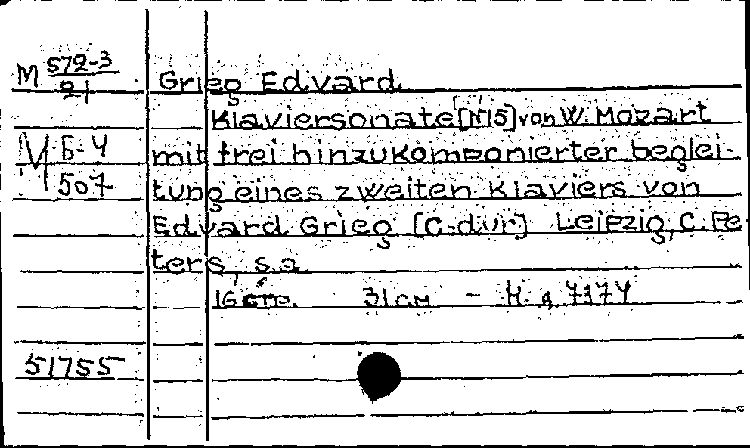 M 572-3
21
Grieg Edvard
Klaviersonate [N15] von W. Mozart
М Б-4
507
mit frei hinzukomponierter beglei-
tung eines zweiten Klaviers von
Edvard Grieg [C-dur] Leipzig, C. Pe-
ters, s.a.
16 стр. 31 см - Н. д. 7174
51755